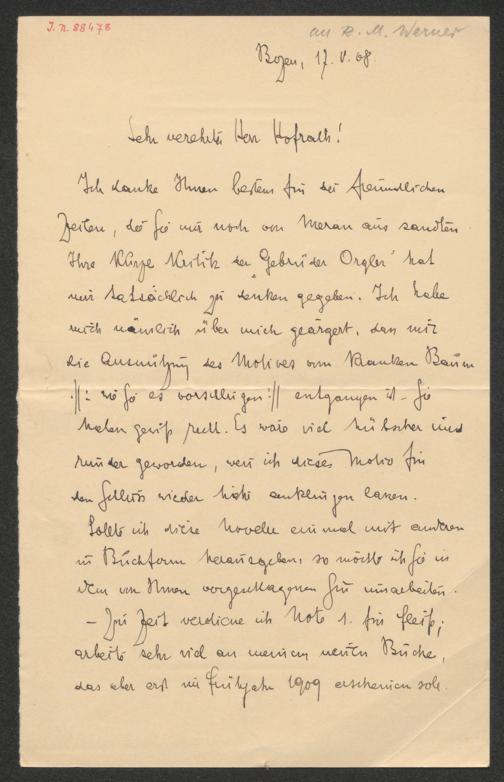 J.N. 88478
an R. M. Werner
Bozen, 17. V. 08.
Sehr verehrter Herr Hofrath!
Ich danke Ihnen bestens für die freundlichen
Zeilen, die Sie mir noch von Meran aus sandten.
Ihre kurze Kritik der „Gebrüder Orgler" hat
mir tatsächlich zu denken gegeben. Ich habe
mich nämlich über mich geärgert, dass mir
die Ausnützung des Motives vom kranken Baum
//: wie Sie es vorschlugen :// entgangen ist – Sie
haben gewiß recht. Es wäre viel hübscher und
runder geworden, wenn ich dieses Motiv für
den Schluss wieder hätte anklingen lassen.
Sollte ich diese Novelle einmal mit anderen
in Buchform herausgeben, so möchte ich sie in
dem von Ihnen vorgeschlagenen Sinn umarbeiten.
– Zur Zeit verdiene ich Note 1. für Fleiß;
arbeite sehr viel an meinem neuen Buche,
das aber erst im Frühjahr 1909 erscheinen soll.